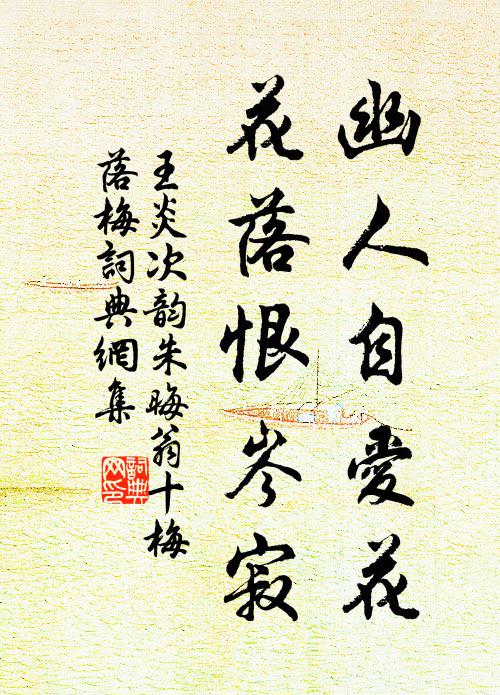 幽人自愛花
花落恨岑寂
王炎次韵朱晦翁十梅
落梅詞典網集
詞典网印